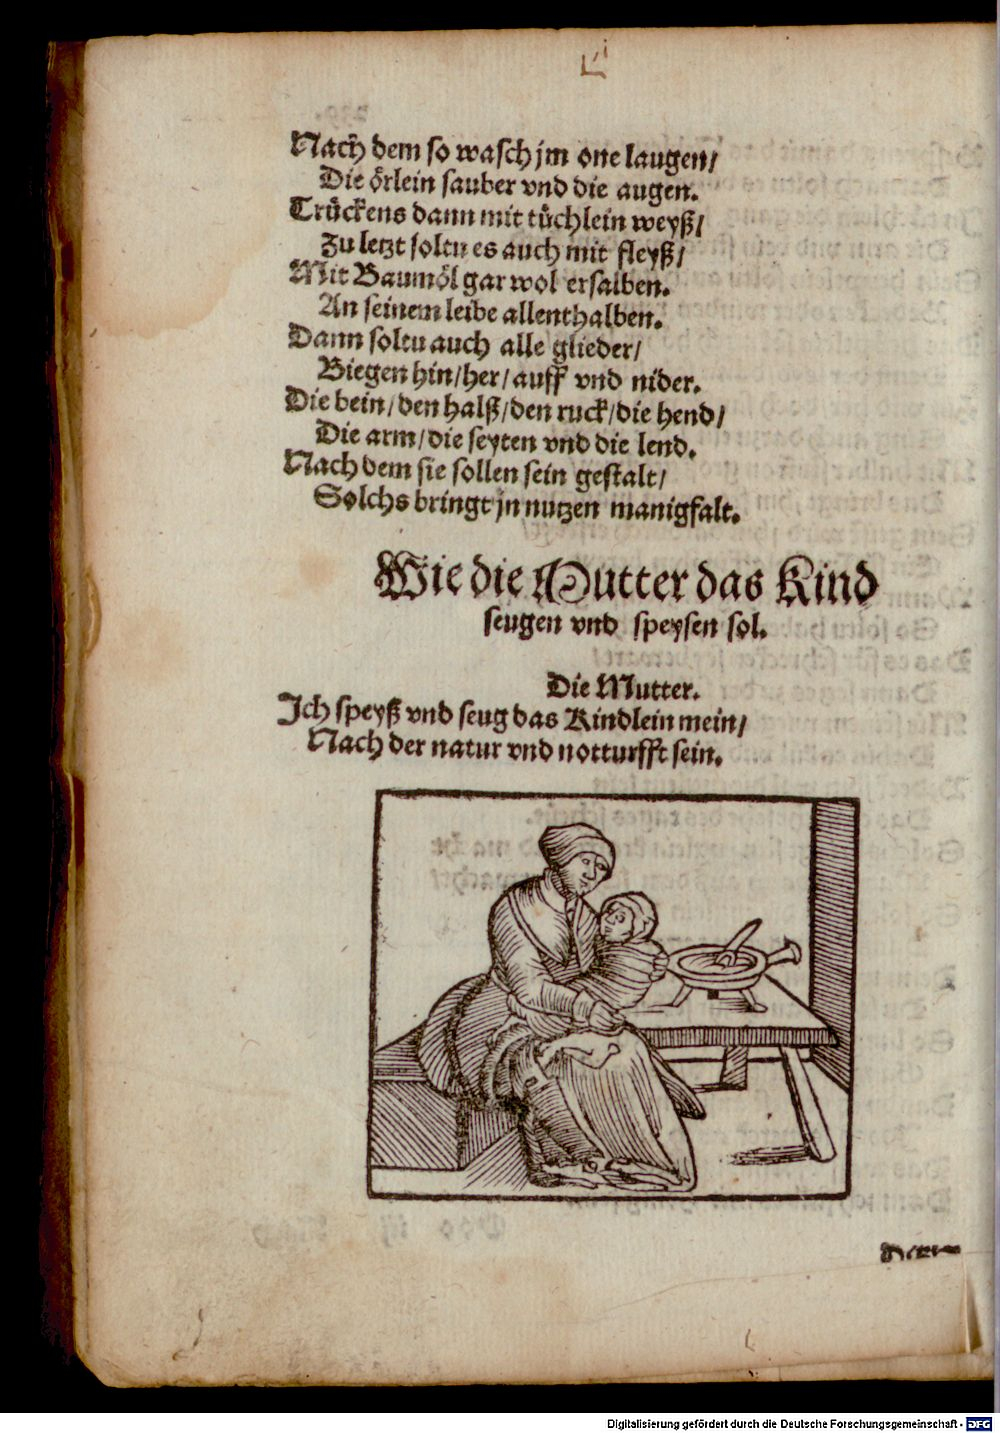 Nach dem so wasch jm one laugen/
Die örlein sauber vnd die augen.
Trückens dann mit tüchlein weyß/
Zu letzt soltu es auch mit fleyß/
Mit Baumöl gar wol ersalben.
An seinem leibe allenthalben.
Dann soltu auch alle glieder/
Biegen hin/her/auff vnd nider.
Die bein/den halß/den ruck/die hend/
Die arm/die seyten vnd die lend.
Nach dem sie sollen sein gestalt/
Solchs bringt jn nutzen manigfalt.
Wie die Mutter das Kind
seugen vnd speysen sol.
Die Mutter.
Ich speyß vnd seug das Kindlein mein/
Nach der natur vnd notturfft sein.
Digitalisierung gefördert durch die Deutsche Forschungsgemeinschaft - DFG